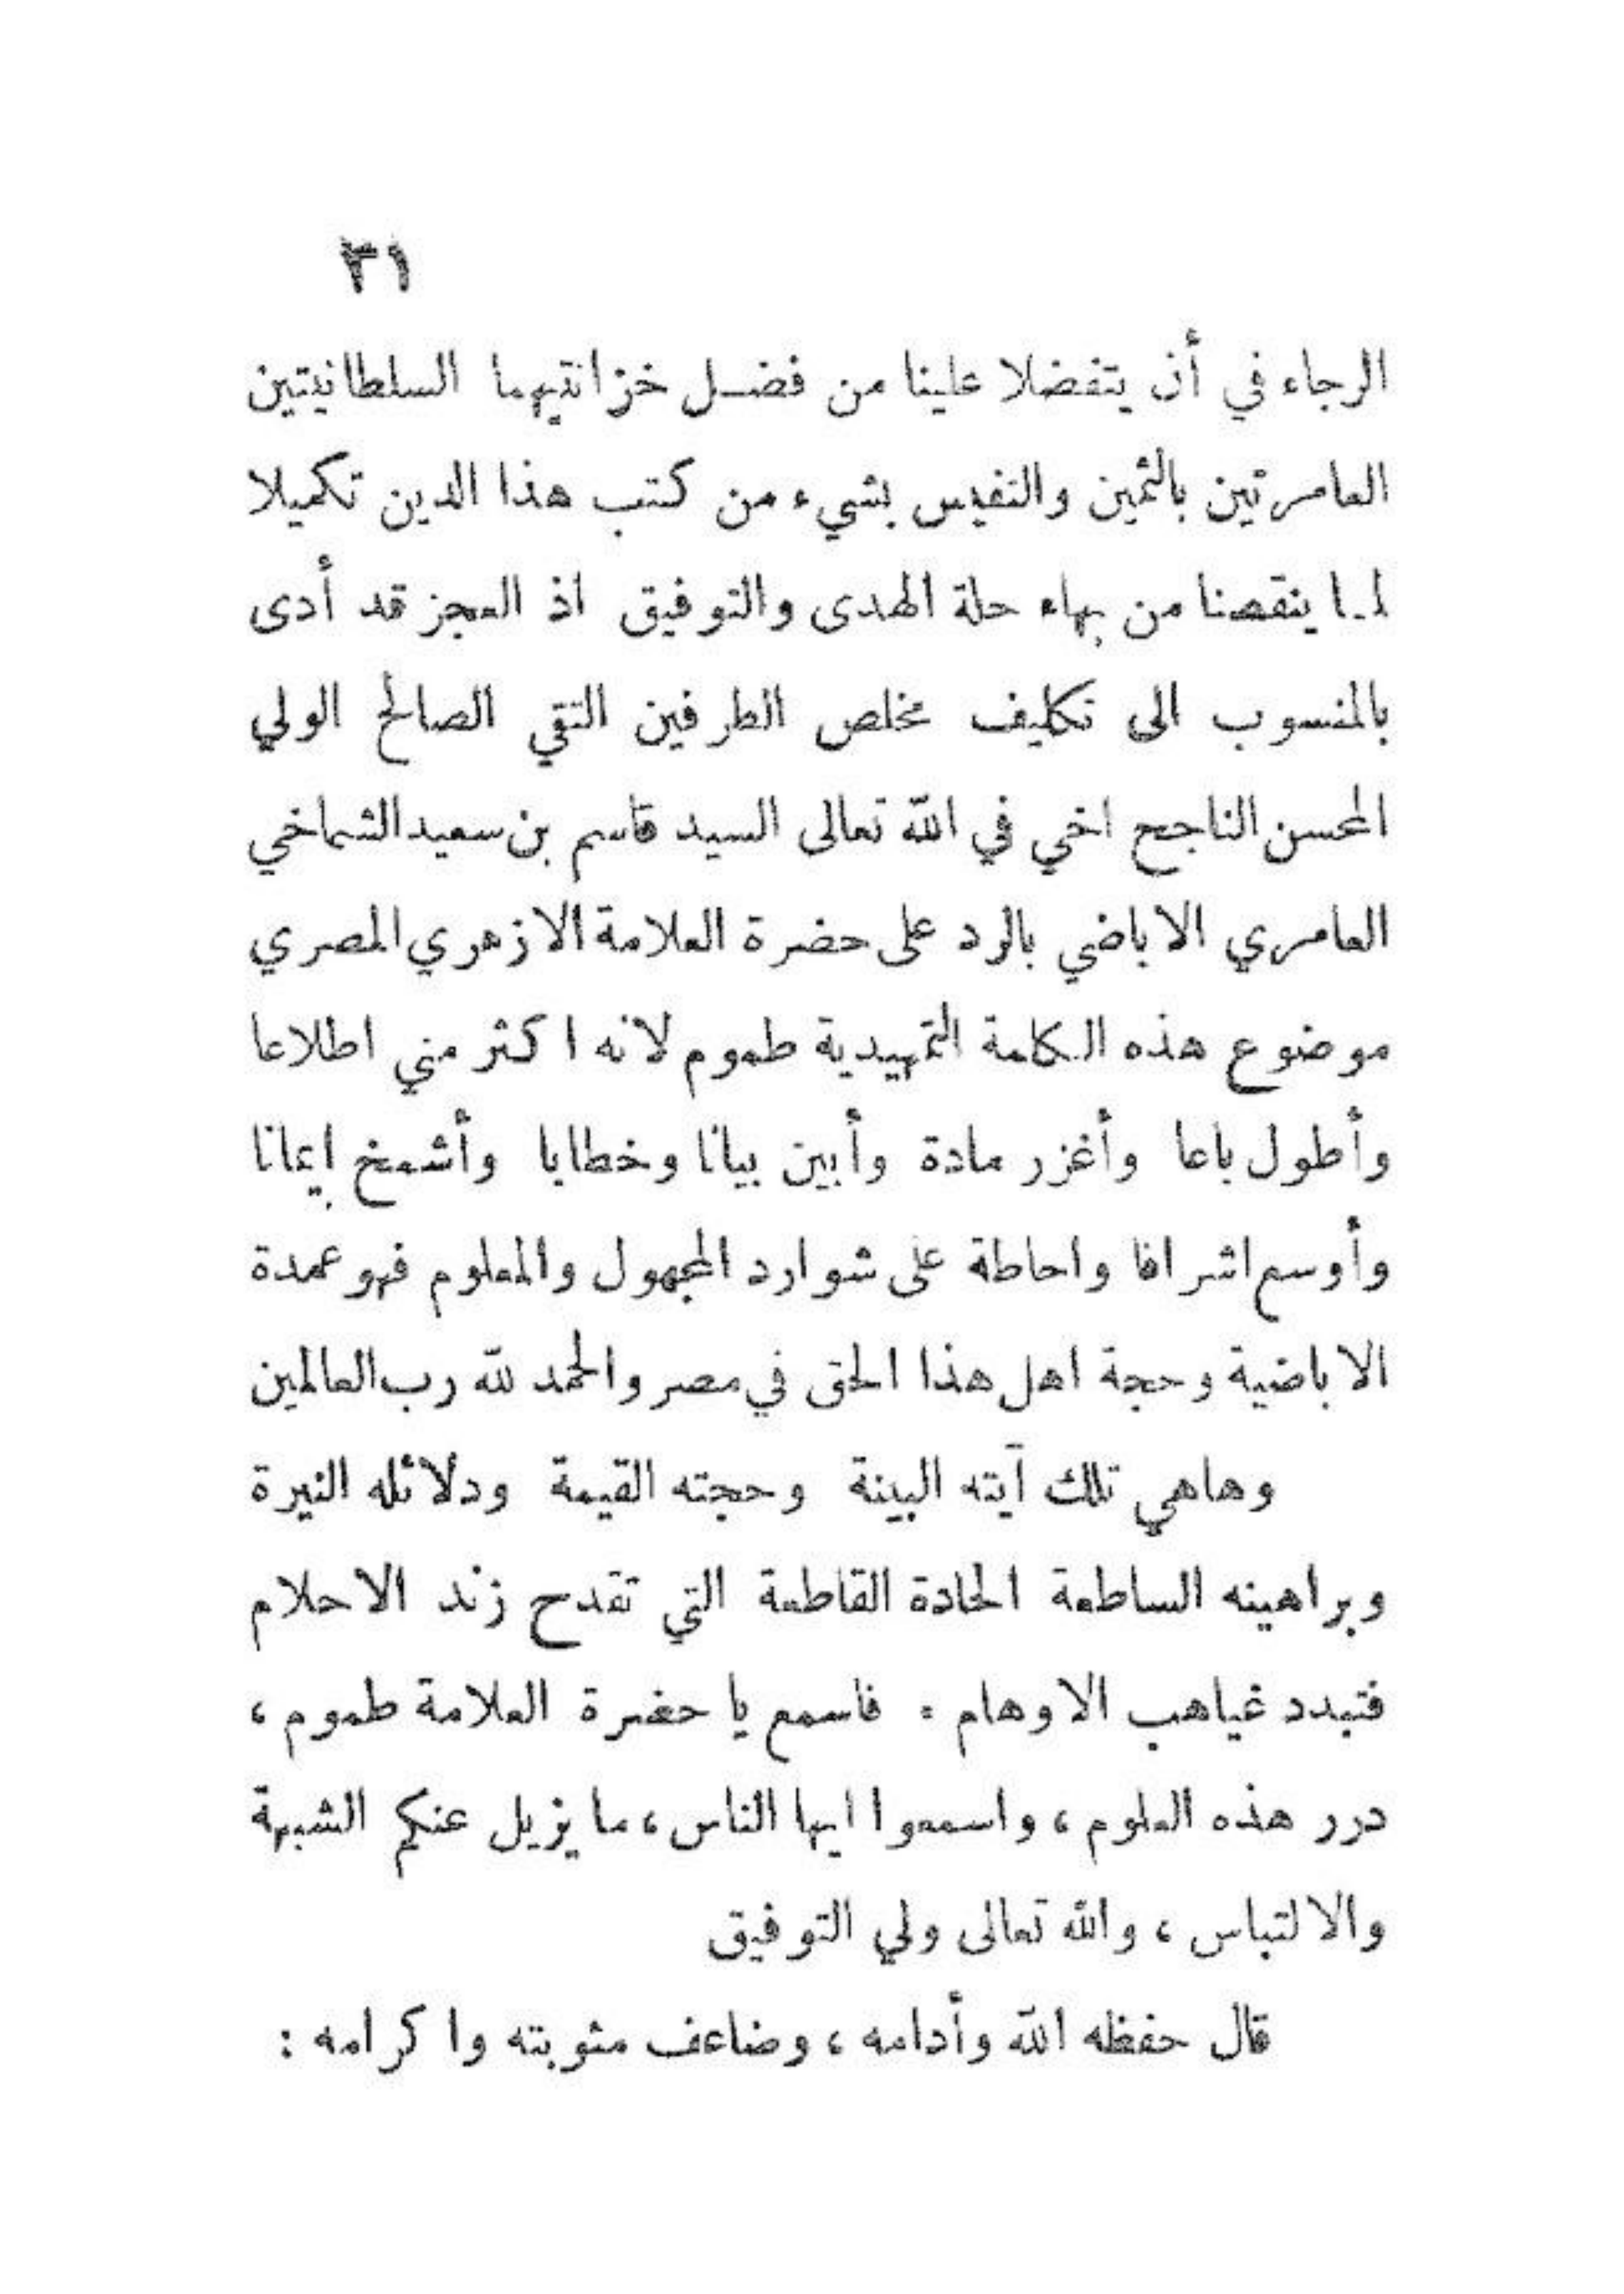 ٣١
الرجاء في أن يتفضلا علينا من فضل خزانتيهما السلطانيتين
العامرتين بالثمين والنفيس بشيء من كتب هذا الدين تكميلا
لما ينقصنا من بهاء حلة الهدى والتوفيق اذ العجز قد أدى
بالمنسوب الى تكليف مخلص الطرفين التقي الصالح الولي
المحسن الناجح اخي في الله تعالى السيد قاسم بن سعيد الشماخي
العامري الاباضي بالرد على حضرة العلامة الازهري المصري
موضوع هذه الكلمة التمهيدية طموم لانه اكثر مني اطلاعا
وأطول باعا وأغزر مادة وأبين بيانا وخطابا وأشمخ ايمانا
وأوسع اشرافا واحاطة على شوارد المجهول والمعلوم فهو عمدة
الاباضية وحجة اهل هذا الحق في مصر والحمد لله رب العالمين
وهاهي تلك آيته البينة وحجته القيمة ودلائله النيرة
وبراهينه الساطعة الحادة القاطعة التي تقدح زند الاحلام
فتبدد غياهب الاوهام . فاسمع يا حضرة العلامة طموم ،
درر هذه العلوم ، واسمعوا ايها الناس ، ما يزيل عنكم الشبهة
والالتباس ، والله تعالى ولي التوفيق
قال حفظه الله وأدامه ، وضاعف مثوبته واكرامه :